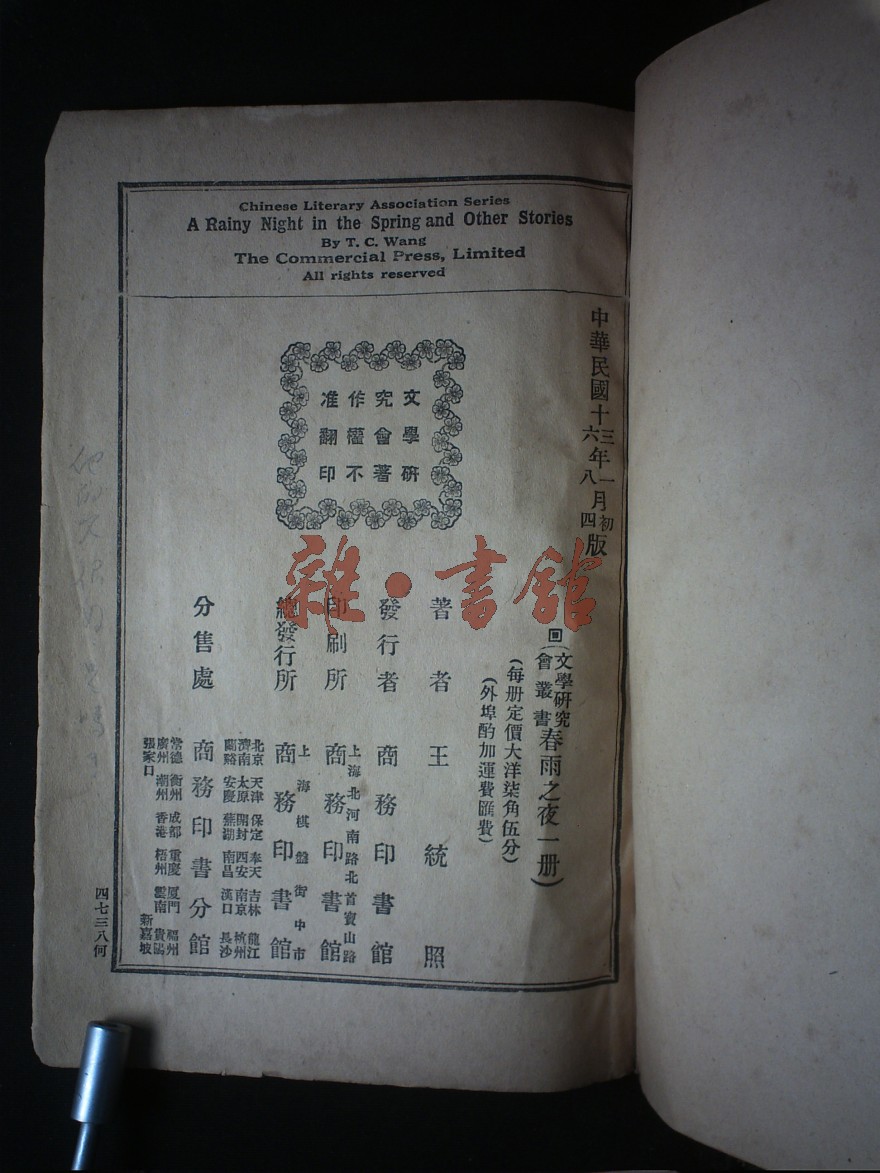 Chinese Literary Association Series
A Rainy Night in the Spring and Other Stories
By T. C. Wang
The Commercial Press, Limited
All rights reserved
中華民國十三年一月初版
六年八月四版
文學研
究會著
作權不
准翻印
回(文學研究會叢書春雨之夜一册)
(每册定價大洋柒角伍分)
(外埠酌加運費匯費)
著者 王統照
發行者 商務印書館
印刷所 上海北河南路北首寶山路 商務印書館
總發行所 上海棋盤街中市 商務印書館
分售處 商務印書分館
北京 天津 保定 奉天 吉林 龍江
濟南 太原 開封 西安 南京 杭州
蘭谿 安慶 蕪湖 南昌 漢口 長沙
常德 衡州 成都 重慶 厦門 福州
廣州 潮州 香港 梧州 雲南 貴陽
張家口 新嘉坡
四七三八何
雜·書館